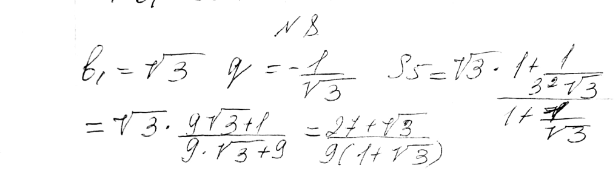 N 8
b₁ = √3 q = -1/√3 S5 = √3 · (1 + 1/(3²√3))/(1 + 1/√3)
= √3 · (9√3+1)/(9·√3+9) = (27+√3)/(9(1+√3))